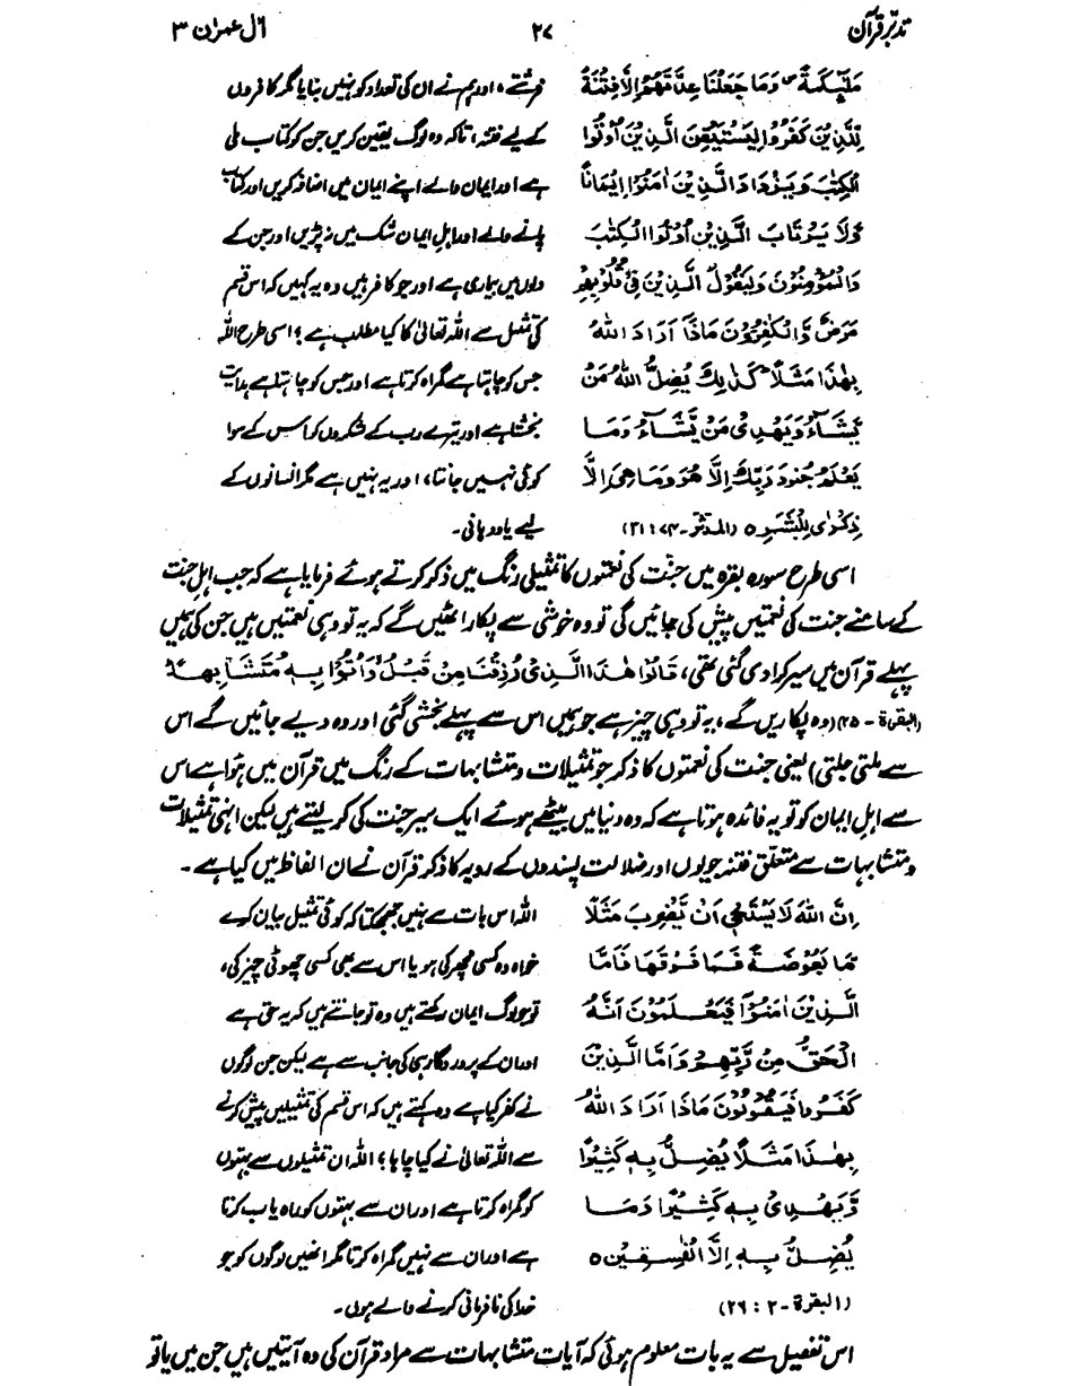 تدبّر قرآن ۲۷ اٰل عمران ۳
مَلٰٓئِكَةً ۪ وَمَا جَعَلْنَا عِدَّتَهُمْ اِلَّا فِتْنَةً فرشتے، اور ہم نے ان کی تعداد کو نہیں بنایا مگر کافروں
لِّلَّذِيْنَ كَفَرُوْا لِيَسْتَيْقِنَ الَّذِيْنَ اُوْتُوا کے لیے فتنہ، تاکہ وہ لوگ یقین کریں جن کو کتاب ملی
الْكِتٰبَ وَيَزْدَادَ الَّذِيْنَ اٰمَنُوْٓا اِيْمَانًا ہے اور ایمان والے اپنے ایمان میں اضافہ کریں اور کتاب
وَّلَا يَرْتَابَ الَّذِيْنَ اُوْتُوا الْكِتٰبَ پانے والے اور اہلِ ایمان شک میں نہ پڑیں اور جن کے
وَالْمُؤْمِنُوْنَ وَلِيَقُوْلَ الَّذِيْنَ فِيْ قُلُوْبِهِمْ دلوں میں بیماری ہے اور جو کافر ہیں وہ یہ کہیں کہ اس قسم
مَرَضٌ وَّالْكٰفِرُوْنَ مَاذَآ اَرَادَ اللّٰهُ کی تمثیل سے اللہ تعالیٰ کا کیا مطلب ہے؟ اسی طرح اللہ
بِهٰذَا مَثَلًا ؕ كَذٰلِكَ يُضِلُّ اللّٰهُ مَنْ جس کو چاہتا ہے گمراہ کرتا ہے اور جس کو چاہتا ہے ہدایت
يَّشَآءُ وَيَهْدِيْ مَنْ يَّشَآءُ ؕ وَمَا بخشتا ہے اور تیرے رب کے لشکروں کو اس کے سوا
يَعْلَمُ جُنُوْدَ رَبِّكَ اِلَّا هُوَ وَمَا هِيَ اِلَّا کوئی نہیں جانتا، اور یہ نہیں ہے مگر انسانوں کے
ذِكْرٰى لِلْبَشَرِ ہ (المدثر۔ ۷۴ : ۳۱) لیے یاد دہانی۔
اسی طرح سورہ بقرہ میں جنّت کی نعمتوں کا تمثیلی رنگ میں ذکر کرتے ہوئے فرمایا ہے کہ جب اہلِ جنت
کے سامنے جنت کی نعمتیں پیش کی جائیں گی تو وہ خوشی سے پکار اٹھیں گے کہ یہ تو وہی نعمتیں ہیں جن کی ہمیں
پہلے قرآن میں سیر کرا دی گئی تھی، قَالُوْا هٰذَا الَّذِيْ رُزِقْنَا مِنْ قَبْلُ وَاُتُوْا بِهٖ مُتَشَابِهًا
(البقرۃ - ۲۵) (وہ پکاریں گے، یہ تو وہی چیز ہے جو ہمیں اس سے پہلے بخشی گئی اور وہ دیے جائیں گے اس
سے ملتی جلتی) یعنی جنت کی نعمتوں کا ذکر جو تمثیلات و متشابہات کے رنگ میں قرآن میں ہوا ہے اس
سے اہلِ ایمان کو تو یہ فائدہ ہوتا ہے کہ وہ دنیا میں بیٹھے ہوئے ایک سیر جنت کی کر لیتے ہیں لیکن انہی تمثیلات
و متشابہات سے متعلق فتنہ جویوں اور ضلالت پسندوں کے رویہ کا ذکر قرآن نے ان الفاظ میں کیا ہے۔
اِنَّ اللّٰهَ لَا يَسْتَحْيٖٓ اَنْ يَّضْرِبَ مَثَلًا اللہ اس بات سے نہیں جھجکتا کہ کوئی تمثیل بیان کرے
مَّا بَعُوْضَةً فَمَا فَوْقَهَا فَاَمَّا خواہ وہ کسی مچھر کی ہو یا اس سے بھی کسی چھوٹی چیز کی،
الَّذِيْنَ اٰمَنُوْا فَيَعْلَمُوْنَ اَنَّهُ تو جو لوگ ایمان رکھتے ہیں وہ تو جانتے ہیں کہ یہ حق ہے
الْحَقُّ مِنْ رَّبِّهِمْ وَاَمَّا الَّذِيْنَ اور ان کے پروردگار ہی کی جانب سے ہے لیکن جن لوگوں
كَفَرُوْا فَيَقُوْلُوْنَ مَاذَآ اَرَادَ اللّٰهُ نے کفر کیا ہے وہ کہتے ہیں کہ اس قسم کی تمثیلیں پیش کرنے
بِهٰذَا مَثَلًا يُضِلُّ بِهٖ كَثِيْرًا سے اللہ تعالیٰ نے کیا چاہا؟ اللہ ان تمثیلوں سے بہتوں
وَّيَهْدِيْ بِهٖ كَثِيْرًا وَمَا کو گمراہ کرتا ہے اور ان سے بہتوں کو راہ یاب کرتا
يُضِلُّ بِهٖٓ اِلَّا الْفٰسِقِيْنَ ہ ہے اور ان سے نہیں گمراہ کرتا مگر انھیں لوگوں کو جو
(البقرۃ۔ ۲ : ۲۶) خدا کی نافرمانی کرنے والے ہوں۔
اس تفصیل سے یہ بات معلوم ہوئی کہ آیات متشابہات سے مراد قرآن کی وہ آیتیں ہیں جن میں یا تو